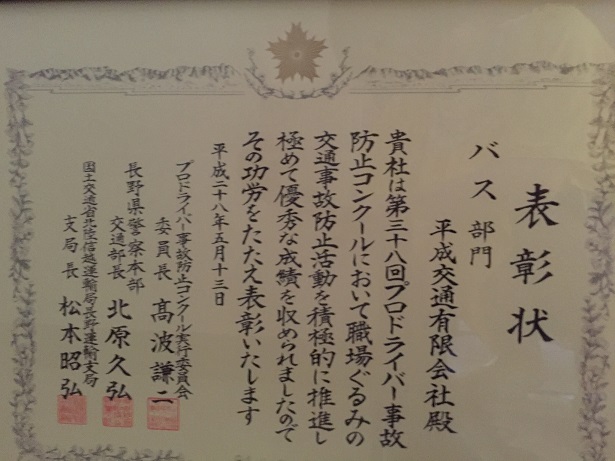 表彰状
バス部門
平成交通有限会社殿
貴社は第三十八回プロドライバー事故
防止コンクールにおいて職場ぐるみの
交通事故防止活動を積極的に推進し
極めて優秀な成績を収められましたので
その功労をたたえ表彰いたします
平成二十八年五月十三日
プロドライバー事故防止コンクール実行委員会
委員長 髙波謙二
長野県警察本部
交通部長 北原久弘
国土交通省北陸信越運輸局長野運輸支局
支局長 松本昭弘